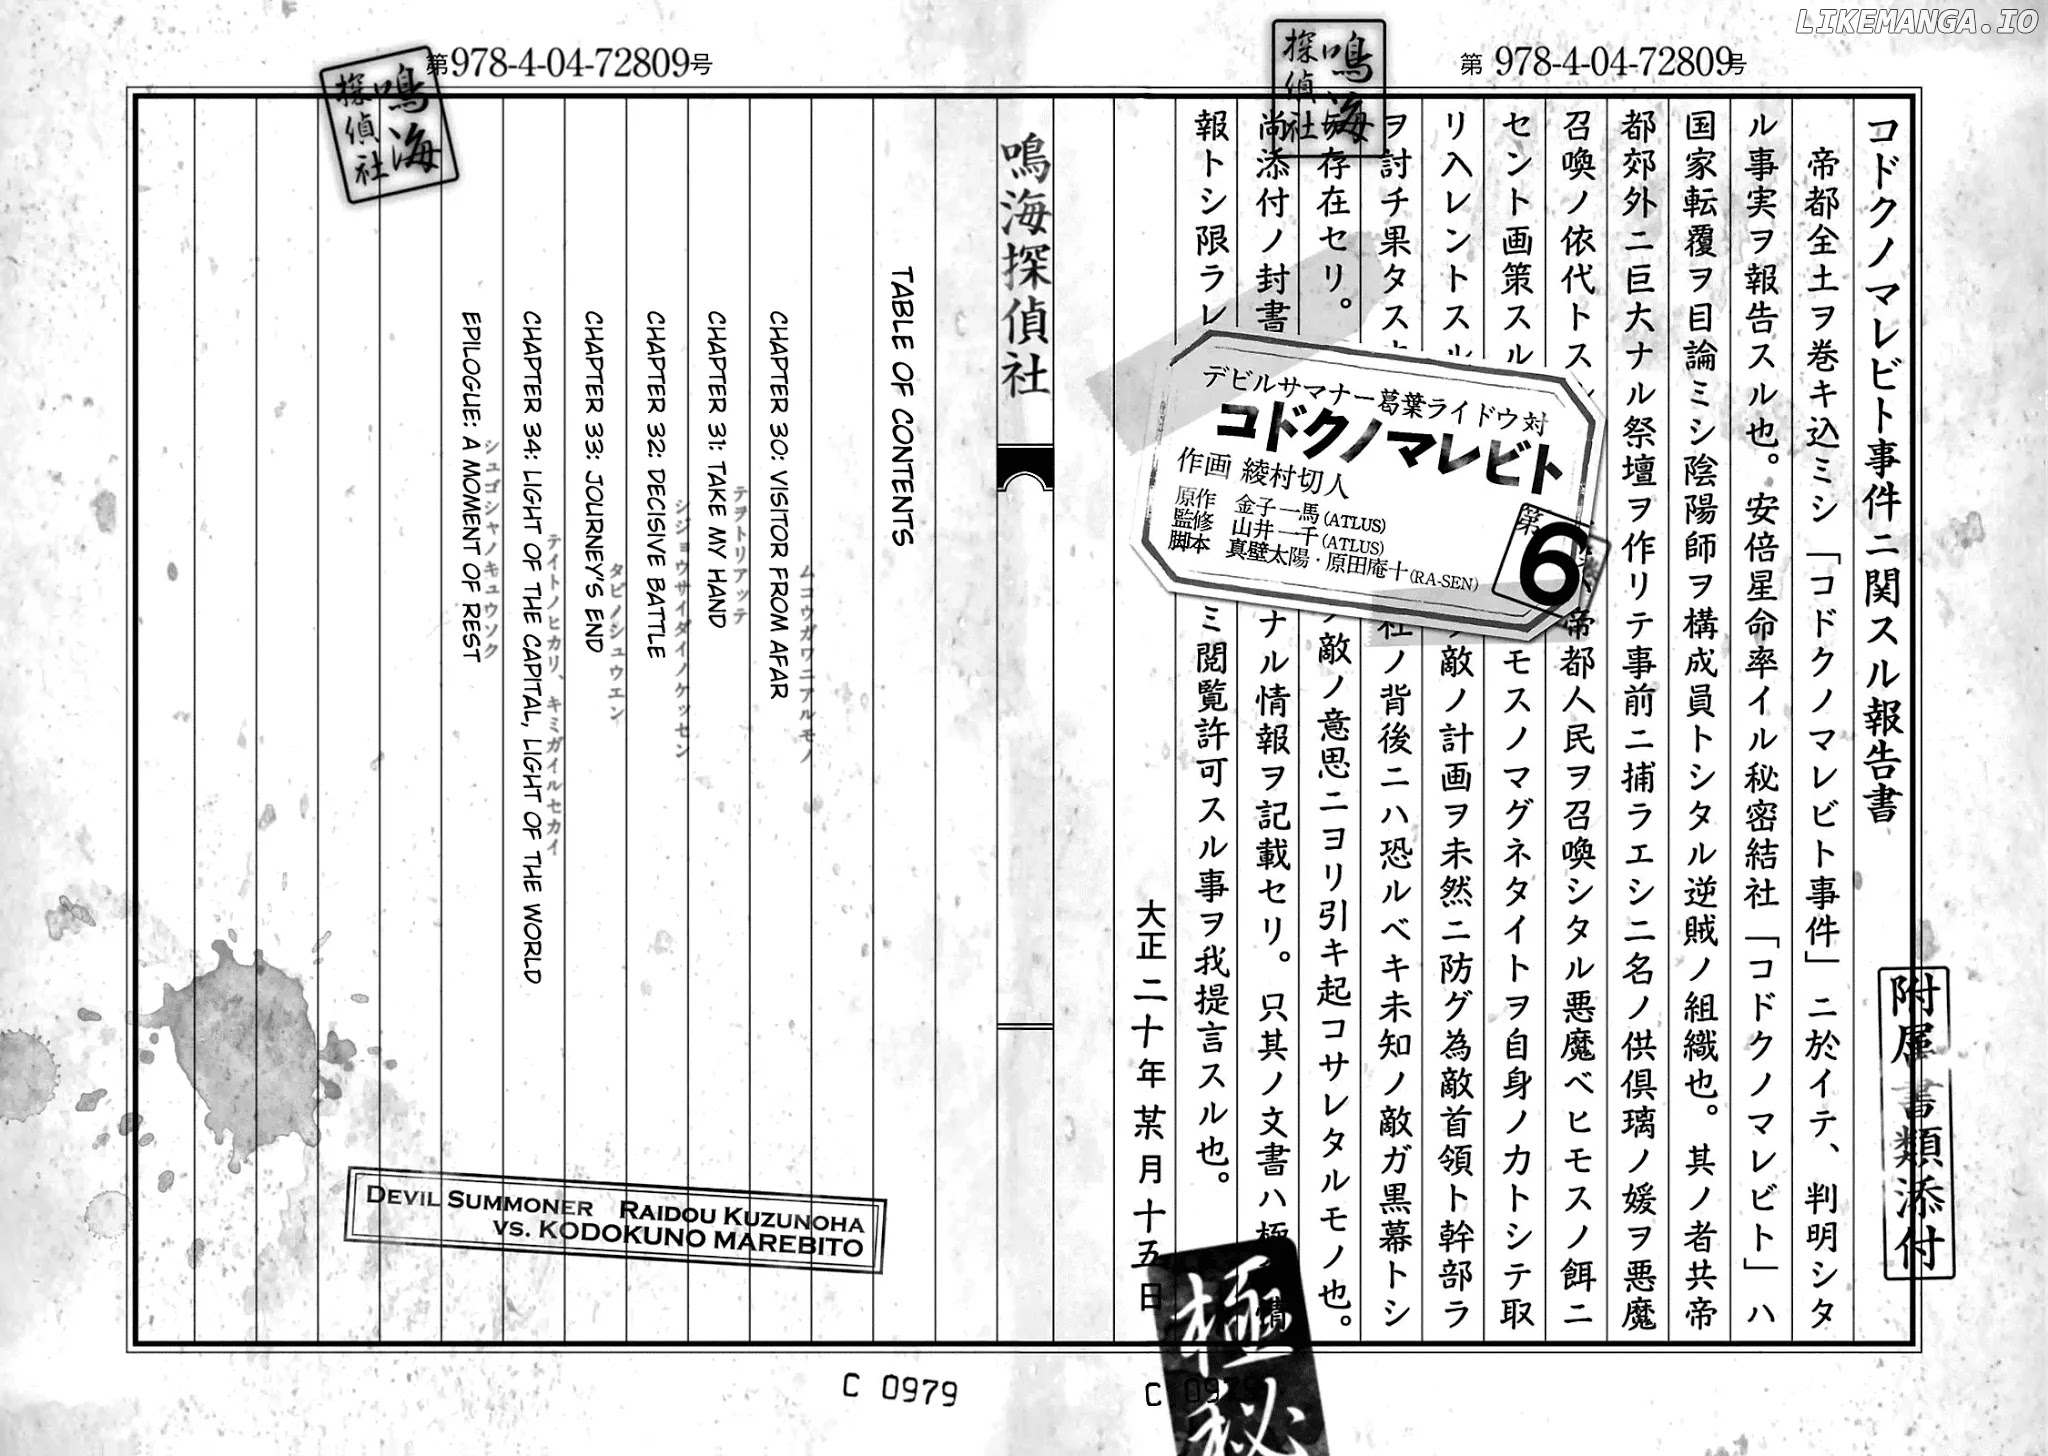 LIKEMANGA.IO
第 978-4-04-72809 号
鳴海
探偵社
コドクノマレビト事件ニ関スル報告書
附属書類添付
帝都全土ヲ巻キ込ミシ「コドクノマレビト事件」ニ於イテ、判明シタ
ル事実ヲ報告スル也。安倍星命率イル秘密結社「コドクノマレビト」ハ
国家転覆ヲ目論ミシ陰陽師ヲ構成員トシタル逆賊ノ組織也。其ノ者共帝
都郊外ニ巨大ナル祭壇ヲ作リテ事前ニ捕ラエシ二名ノ供倶璃ノ媛ヲ悪魔
召喚ノ依代トス 帝都人民ヲ召喚シタル悪魔ベヒモスノ餌ニ
セント画策スル モスノマグネタイトヲ自身ノ力トシテ取
リ入レントスル 敵ノ計画ヲ未然ニ防グ為敵首領ト幹部ラ
ヲ討チ果タス 社ノ背後ニハ恐ルベキ未知ノ敵ガ黒幕トシ
存在セリ。 敵ノ意思ニヨリ引キ起コサレタルモノ也。
尚添付ノ封書 ナル情報ヲ記載セリ。只其ノ文書ハ極
報トシ限ラレ ミ閲覧許可スル事ヲ我提言スル也。
大正二十年某月十五日
デビルサマナー葛葉ライドウ対
コドクノマレビト
第6
作画 綾村切人
原作 金子一馬(ATLUS)
監修 山井一千(ATLUS)
脚本 真壁太陽・原田庵十(RA-SEN)
極秘
C 0979
鳴海探偵社
第978-4-04-72809号
鳴海
探偵社
TABLE OF CONTENTS
ムコウガワニアルモノ
CHAPTER 30: VISITOR FROM AFAR
テヲトリアッテ
CHAPTER 31: TAKE MY HAND
シジョウサイダイノケッセン
CHAPTER 32: DECISIVE BATTLE
タビノシュウエン
CHAPTER 33: JOURNEY'S END
テイトノヒカリ、キミガイルセカイ
CHAPTER 34: LIGHT OF THE CAPITAL, LIGHT OF THE WORLD
シュゴシャノキュウソク
EPILOGUE: A MOMENT OF REST
DEVIL SUMMONER RAIDOU KUZUNOHA
VS. KODOKUNO MAREBITO
C 0979